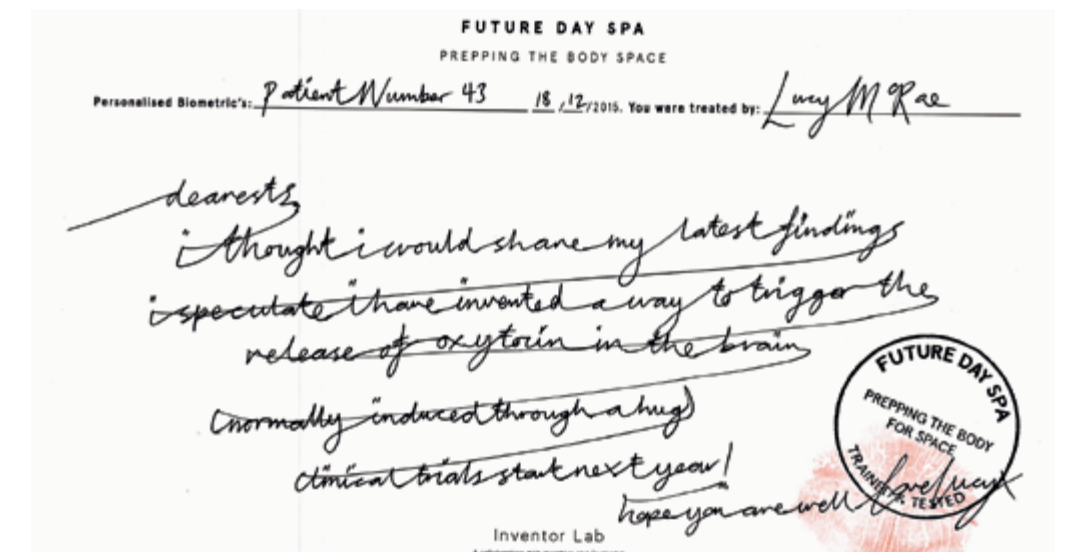 FUTURE DAY SPA
PREPPING THE BODY SPACE
Personalised Biometric's: Patient Number 43 18/12/2015. You were treated by: Lucy McRae
dearests,
i thought i would share my latest findings
i speculate i have invented a way to trigger the
release of oxytocin in the brain
(normally induced through a hug)
clinical trials start next year!
hope you are well love lucy x
FUTURE DAY SPA
PREPPING THE BODY
FOR SPACE
TESTED
Inventor Lab